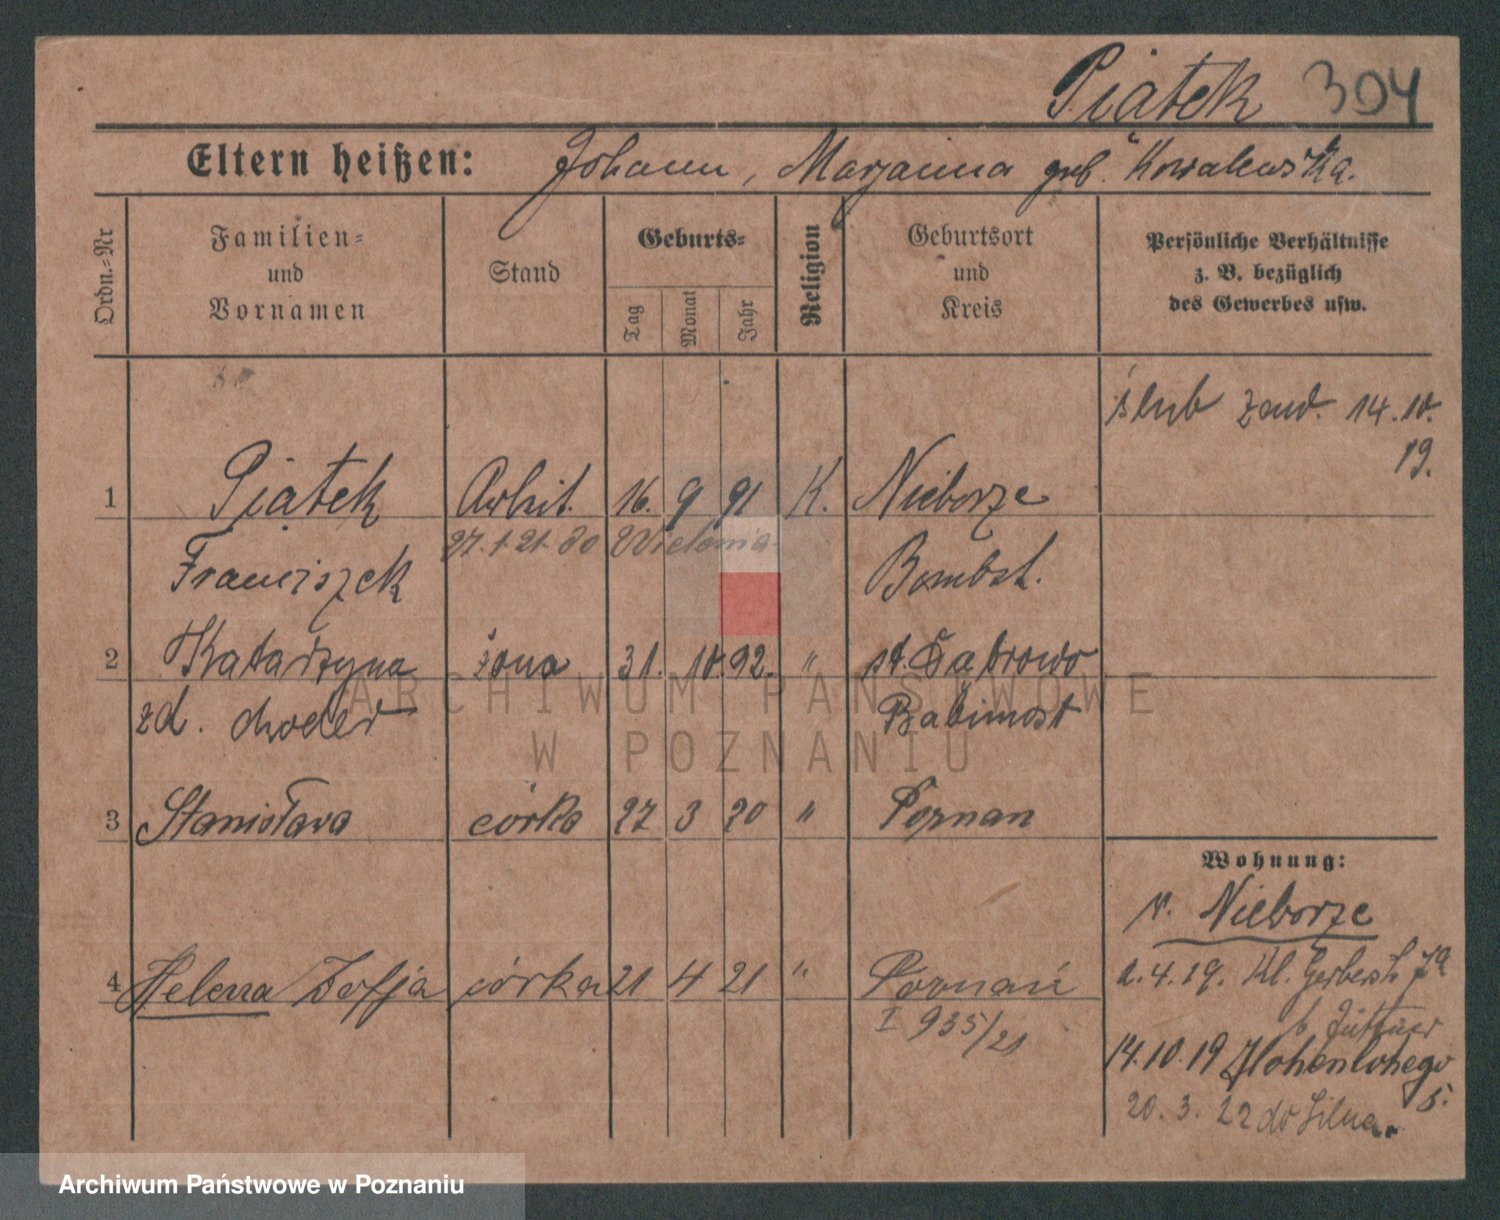 Piątek 304
Eltern heißen: Johann, Marjanna geb. Kowalewska.
Ordn.=Nr
Familien=
und
Vornamen
Stand
Geburts=
Tag
Monat
Jahr
Religion
Geburtsort
und
Kreis
Persönliche Verhältnisse
z. B. bezüglich
des Gewerbes usw.
ślub zaw. 14.10.
19.
1 Piątek Arbit. 16. 9 91 K. Nieborze
27.1.21.
Franciszek Bombst.
2 Katarzyna żona 31. 10. 92. " st. Dąbrowo
zd. Babimost
3 Stanisława córka 27 3 20 " Poznan
Wohnung:
v. Nieborze
2.4.19. Kl. Gerberstr 7a
b. Jüttner
4 Helena Zofja córka 21 4 21 " Poznań
I 935/21
14.10.19 Hohenlohego
5.
20.3.22 do
ARCHIWUM PAŃSTWOWE
W POZNANIU
Archiwum Państwowe w Poznaniu